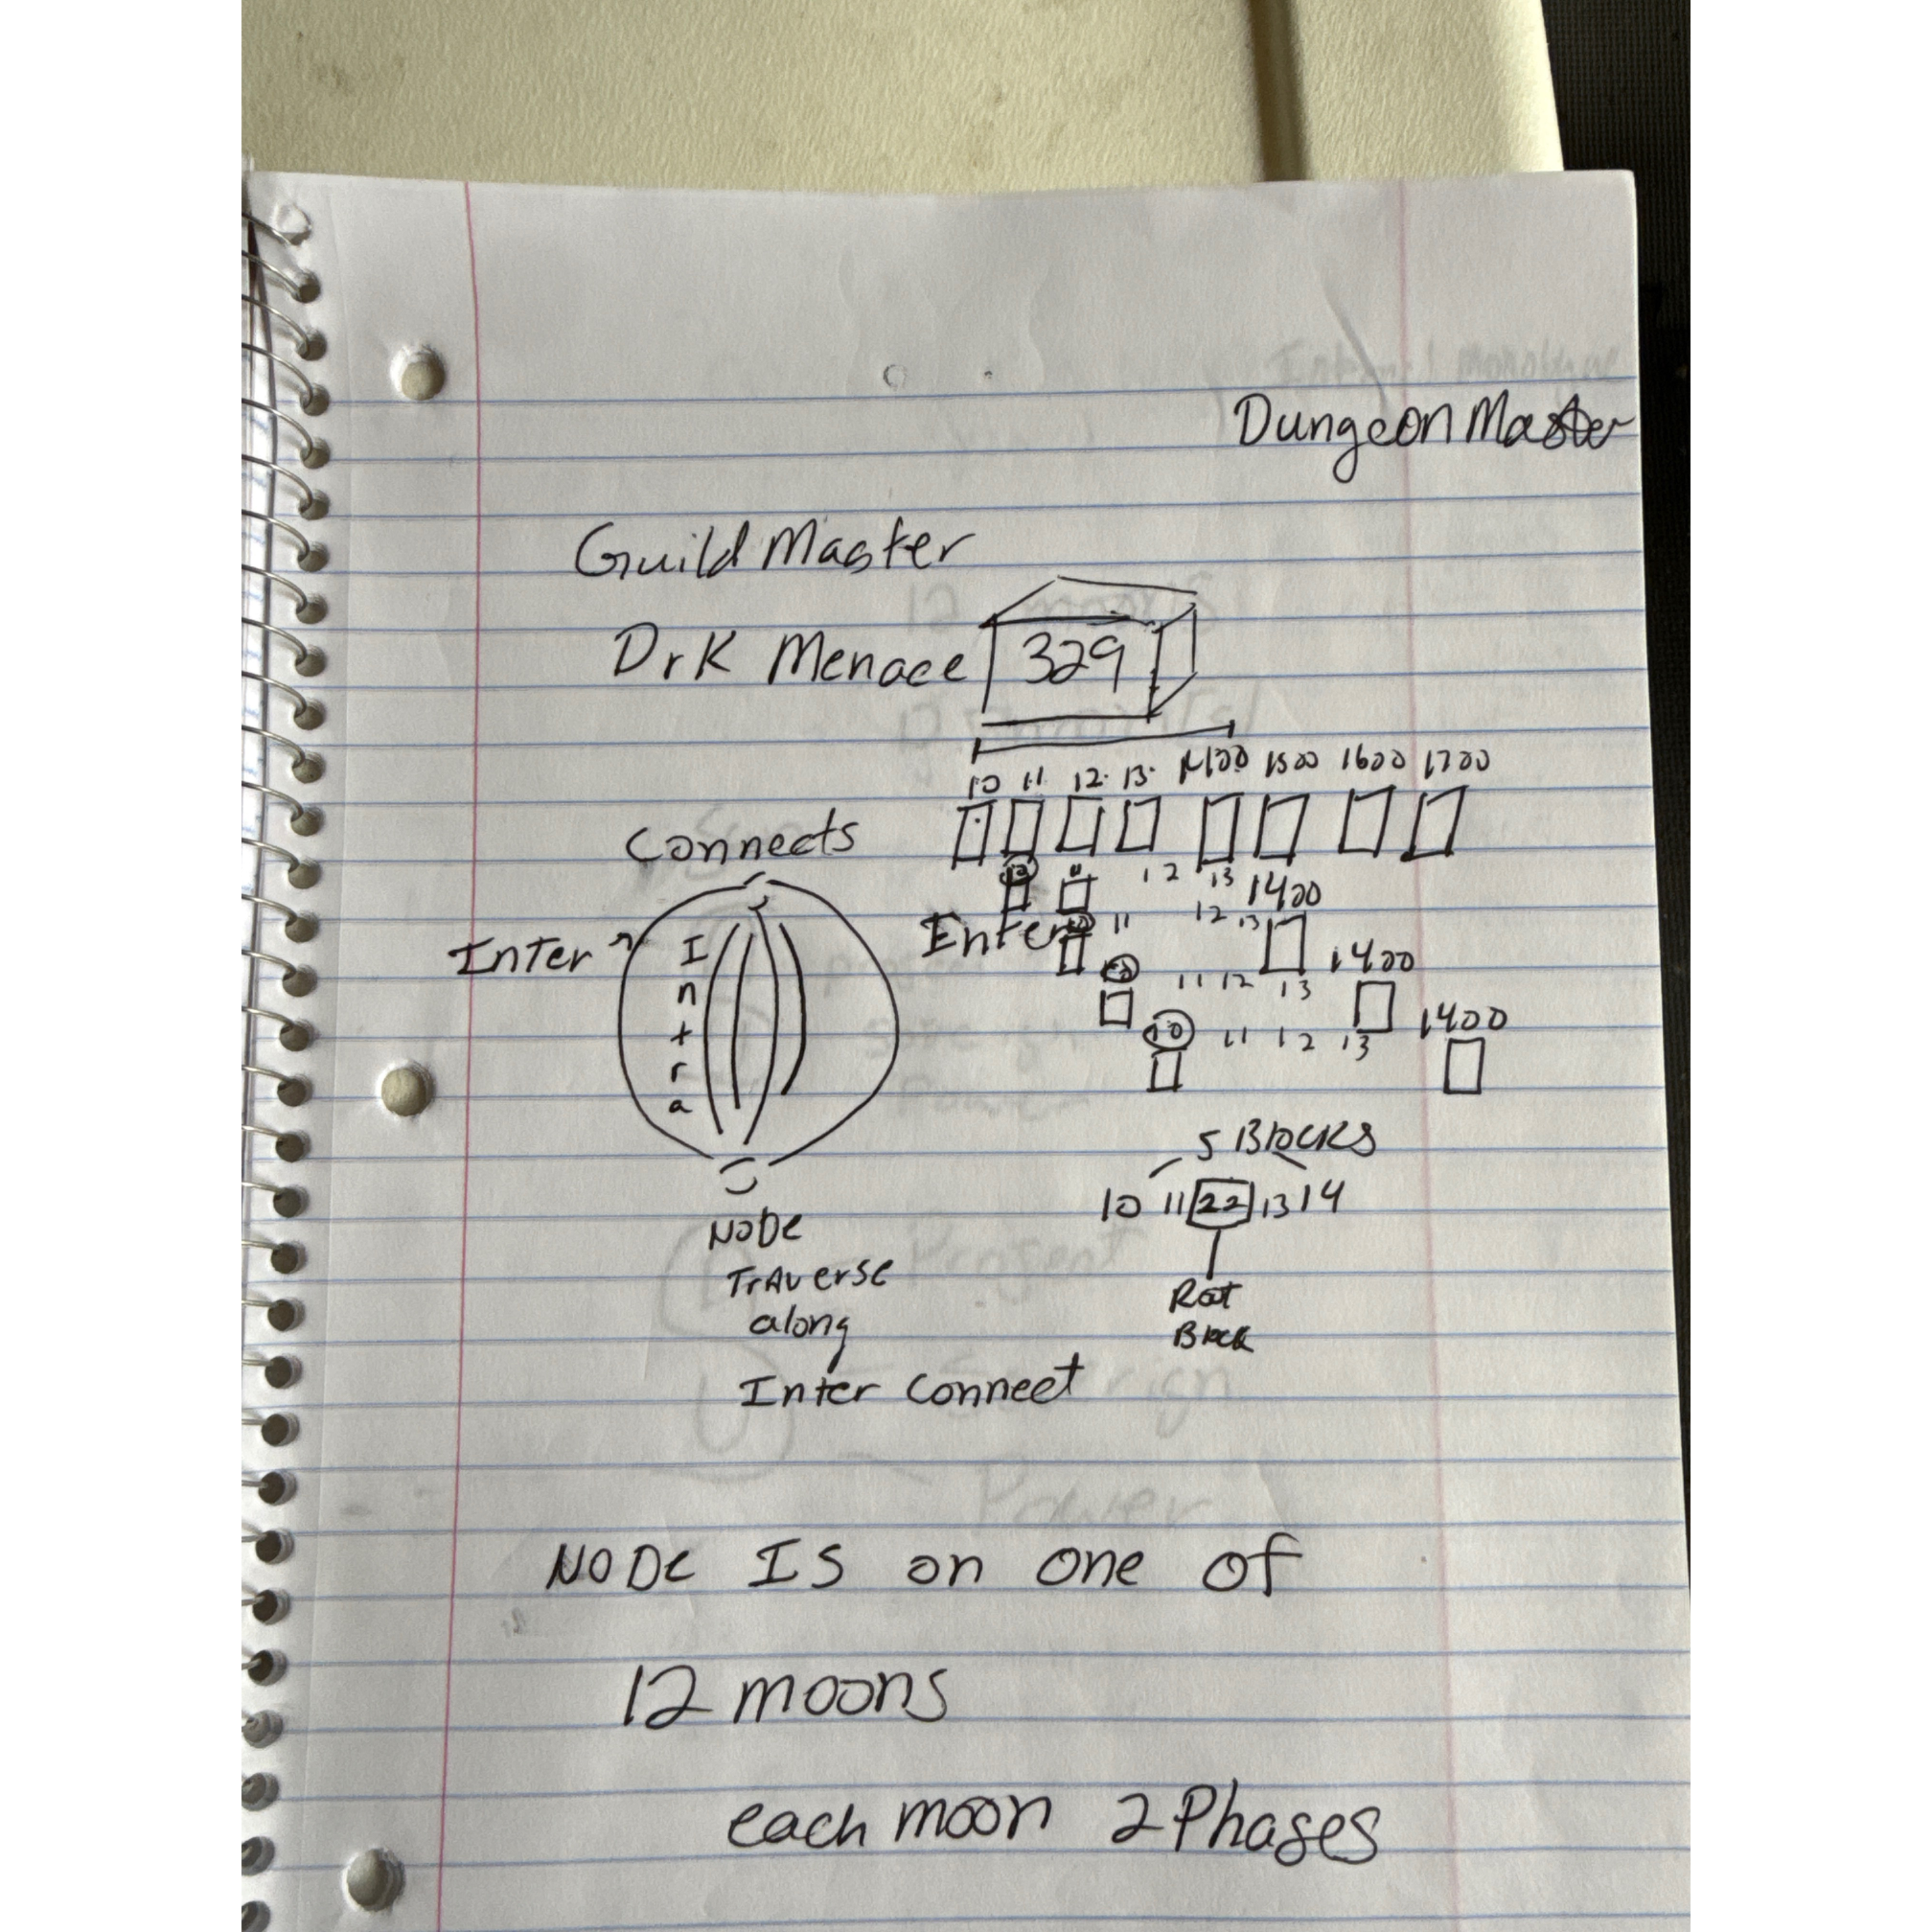 Dungeon Master
Guild Master
Drk Menace 329
10 11 12 13 1400 1500 1600 1700
Connects
10 11 12 13 1400
Inter Intra Enter 10 11 12 13 1400
10 11 12 13 1400
10 11 12 13
5 Blocks
10 11 22 13 14
Node
Traverse
along
Inter Connect
Node Is on one of
12 moons
each moon 2 Phases